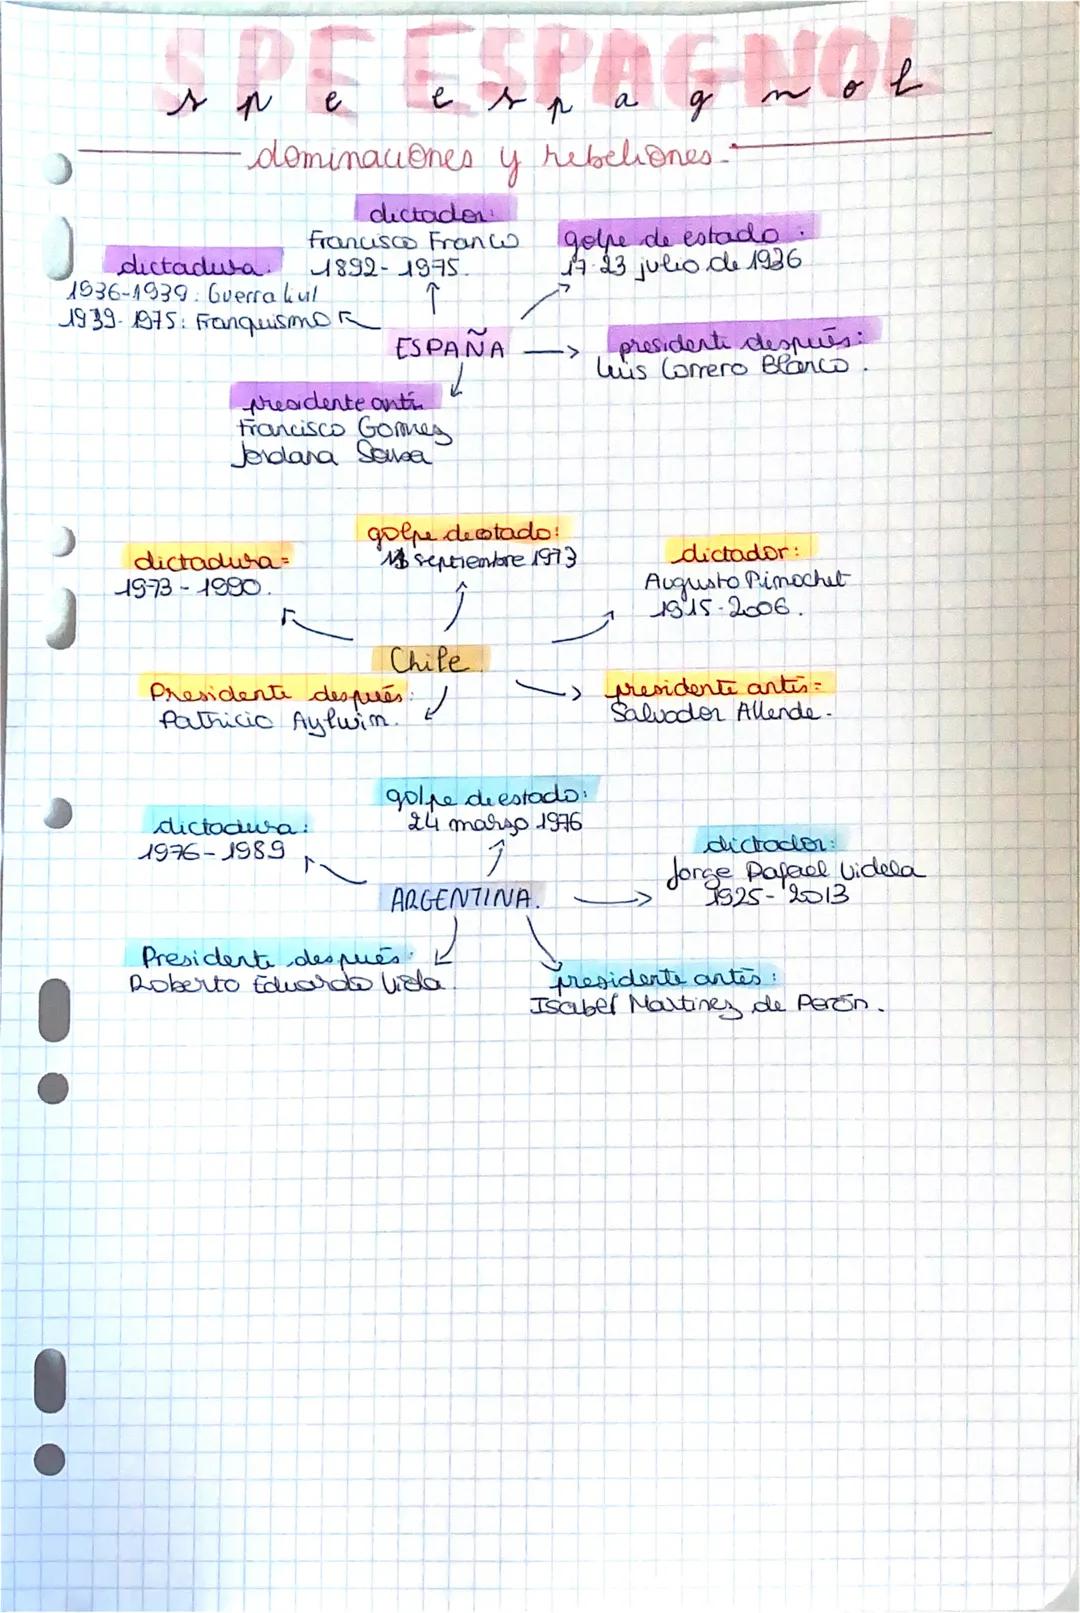 SPE ESPAGNOL
spe espagnol
dominaciones y rebeliones.
dictador:
Francisco Franco
1892-1975.
golpe de estado :
17-23 julio de 1936
dictadura:
1936-1939: Guerra Civil
1939-1975: Franquismo
ESPAÑA
presidente después:
Luis Correro Blanco.
presidente antes
Francisco Gomez
Jordana Sousa
golpe de estado:
septiembre 1973
dictadura=
1973-1990.
dictador:
Augusto Pinochet
1915-2006.
Chile
Presidente después:
Patricio Aylwin.
presidente antes=
Salvador Allende.
golpe de estado:
24 marzo 1976
dictadura:
1976-1989
dictador:
Jorge Rafael Videla
1925-2013
ARGENTINA.
Presidente después:
Roberto Eduardo Viola.
presidente antes:
Isabel Martinez de Perón.